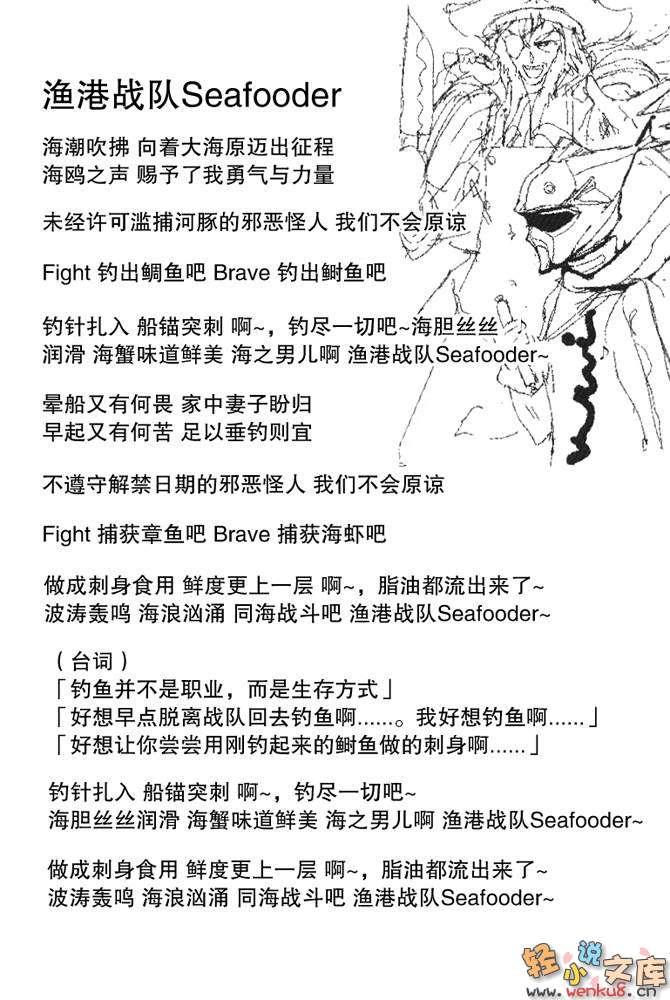 渔港战队Seafooder
海潮吹拂 向着大海原迈出征程
海鸥之声 赐予了我勇气与力量
未经许可滥捕河豚的邪恶怪人 我们不会原谅
Fight 钓出鲷鱼吧 Brave 钓出鲥鱼吧
钓针扎入 船锚突刺 啊~，钓尽一切吧~海胆丝丝
润滑 海蟹味道鲜美 海之男儿啊 渔港战队Seafooder~
晕船又有何畏 家中妻子盼归
早起又有何苦 足以垂钓则宜
不遵守解禁日期的邪恶怪人 我们不会原谅
Fight 捕获章鱼吧 Brave 捕获海虾吧
做成刺身食用 鲜度更上一层 啊~，脂油都流出来了~
波涛轰鸣 海浪汹涌 同海战斗吧 渔港战队Seafooder~
（台词）
「钓鱼并不是职业，而是生存方式」
「好想早点脱离战队回去钓鱼啊......。我好想钓鱼啊......」
「好想让你尝尝用刚钓起来的鲥鱼做的刺身啊......」
钓针扎入 船锚突刺 啊~，钓尽一切吧~
海胆丝丝润滑 海蟹味道鲜美 海之男儿啊 渔港战队Seafooder~
做成刺身食用 鲜度更上一层 啊~，脂油都流出来了~
波涛轰鸣 海浪汹涌 同海战斗吧 渔港战队Seafooder~
轻小说文库
www.wenku8.cn